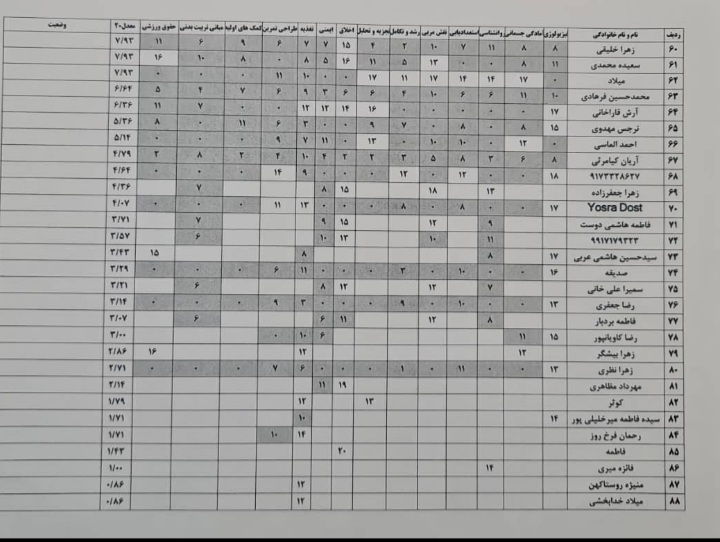 ردیف نام و نام خانوادگی فیزیولوژی آمادگی جسمانی روانشناسی استعدادیابی نقش مربی رشد و تکامل تجزیه و تحلیل اخلاق ایمنی تغذیه طراحی تمرین کمک های اولیه مبانی تربیت بدنی حقوق ورزشی معدل۲۰ وضعیت
۶۰ زهرا خلیقی ۸ ۸ ۱۱ ۷ ۱۰ ۲ ۴ ۱۵ ۷ ۷ ۶ ۹ ۶ ۱۱ ۷/۹۳
۶۱ سعیده محمدی ۱۱ ۸ ۰ ۰ ۱۳ ۵ ۱۱ ۱۶ ۵ ۸ ۰ ۸ ۱۰ ۱۶ ۷/۹۳
۶۲ میلاد ۰ ۱۷ ۱۴ ۱۴ ۱۷ ۱۱ ۱۷ ۰ ۰ ۱۰ ۱۱ ۰ ۰ ۰ ۷/۹۳
۶۳ محمدحسین فرهادی ۱۰ ۱۱ ۶ ۶ ۱۰ ۴ ۶ ۶ ۳ ۹ ۶ ۷ ۴ ۵ ۶/۶۴
۶۴ آرش قاراخانی ۱۷ ۰ ۰ ۰ ۰ ۰ ۱۶ ۱۴ ۱۲ ۱۲ ۰ ۰ ۷ ۱۱ ۶/۳۶
۶۵ نرجس مهدوی ۱۵ ۸ ۰ ۸ ۰ ۷ ۹ ۰ ۰ ۳ ۶ ۱۱ ۰ ۸ ۵/۳۶
۶۶ احمد العاسی ۰ ۱۲ ۰ ۱۰ ۱۰ ۰ ۱۳ ۰ ۱۱ ۷ ۹ ۰ ۰ ۰ ۵/۱۴
۶۷ آریان کیامرثی ۸ ۶ ۳ ۸ ۵ ۳ ۲ ۴ ۲ ۱۰ ۴ ۲ ۸ ۲ ۴/۷۹
۶۸ ۹۱۷۳۳۲۸۶۲۷ ۱۸ ۰ ۰ ۱۲ ۰ ۱۲ ۰ ۰ ۰ ۹ ۱۴ ۰ ۰ ۰ ۴/۶۴
۶۹ زهرا جعفرزاده ۱۳ ۱۸ ۱۵ ۸ ۷ ۴/۳۶
۷۰ Yosra Dost ۱۷ ۰ ۰ ۸ ۰ ۸ ۰ ۰ ۰ ۱۳ ۱۱ ۰ ۰ ۰ ۴/۰۷
۷۱ فاطمه هاشمی دوست ۹ ۱۲ ۱۵ ۹ ۷ ۳/۷۱
۷۲ ۹۹۱۷۱۷۹۳۲۳ ۱۱ ۱۰ ۱۳ ۱۰ ۶ ۳/۵۷
۷۳ سیدحسین هاشمی عربی ۱۷ ۸ ۸ ۱۵ ۳/۴۳
۷۴ صدیقه ۱۶ ۰ ۰ ۱۰ ۰ ۳ ۰ ۰ ۰ ۱۱ ۶ ۰ ۰ ۰ ۳/۲۹
۷۵ سمیرا علی خانی ۷ ۱۲ ۱۲ ۸ ۶ ۳/۲۱
۷۶ رضا جعفری ۱۳ ۰ ۰ ۱۰ ۰ ۹ ۰ ۰ ۰ ۳ ۹ ۰ ۰ ۰ ۳/۱۴
۷۷ فاطمه بردبار ۸ ۱۲ ۱۱ ۶ ۶ ۳/۰۷
۷۸ رضا کاویانپور ۱۵ ۱۱ ۶ ۱۰ ۰ ۳/۰۰
۷۹ زهرا بیشگر ۱۲ ۱۲ ۱۶ ۲/۸۶
۸۰ زهرا نظری ۱۳ ۰ ۰ ۱۱ ۰ ۱ ۰ ۰ ۰ ۶ ۷ ۰ ۰ ۰ ۲/۷۱
۸۱ مهرداد مظاهری ۱۹ ۱۱ ۲/۱۴
۸۲ کوثر ۱۳ ۱۲ ۱/۷۹
۸۳ سیده فاطمه میرخلیلی پور ۱۴ ۱۰ ۱/۷۱
۸۴ رحمان فرخ روز ۱۴ ۱۰ ۱/۷۱
۸۵ فاطمه ۲۰ ۱/۴۳
۸۶ فائزه میری ۱۴ ۱/۰۰
۸۷ منیژه روستاکهن ۱۲ ۰/۸۶
۸۸ میلاد خدابخشی ۱۲ ۰/۸۶